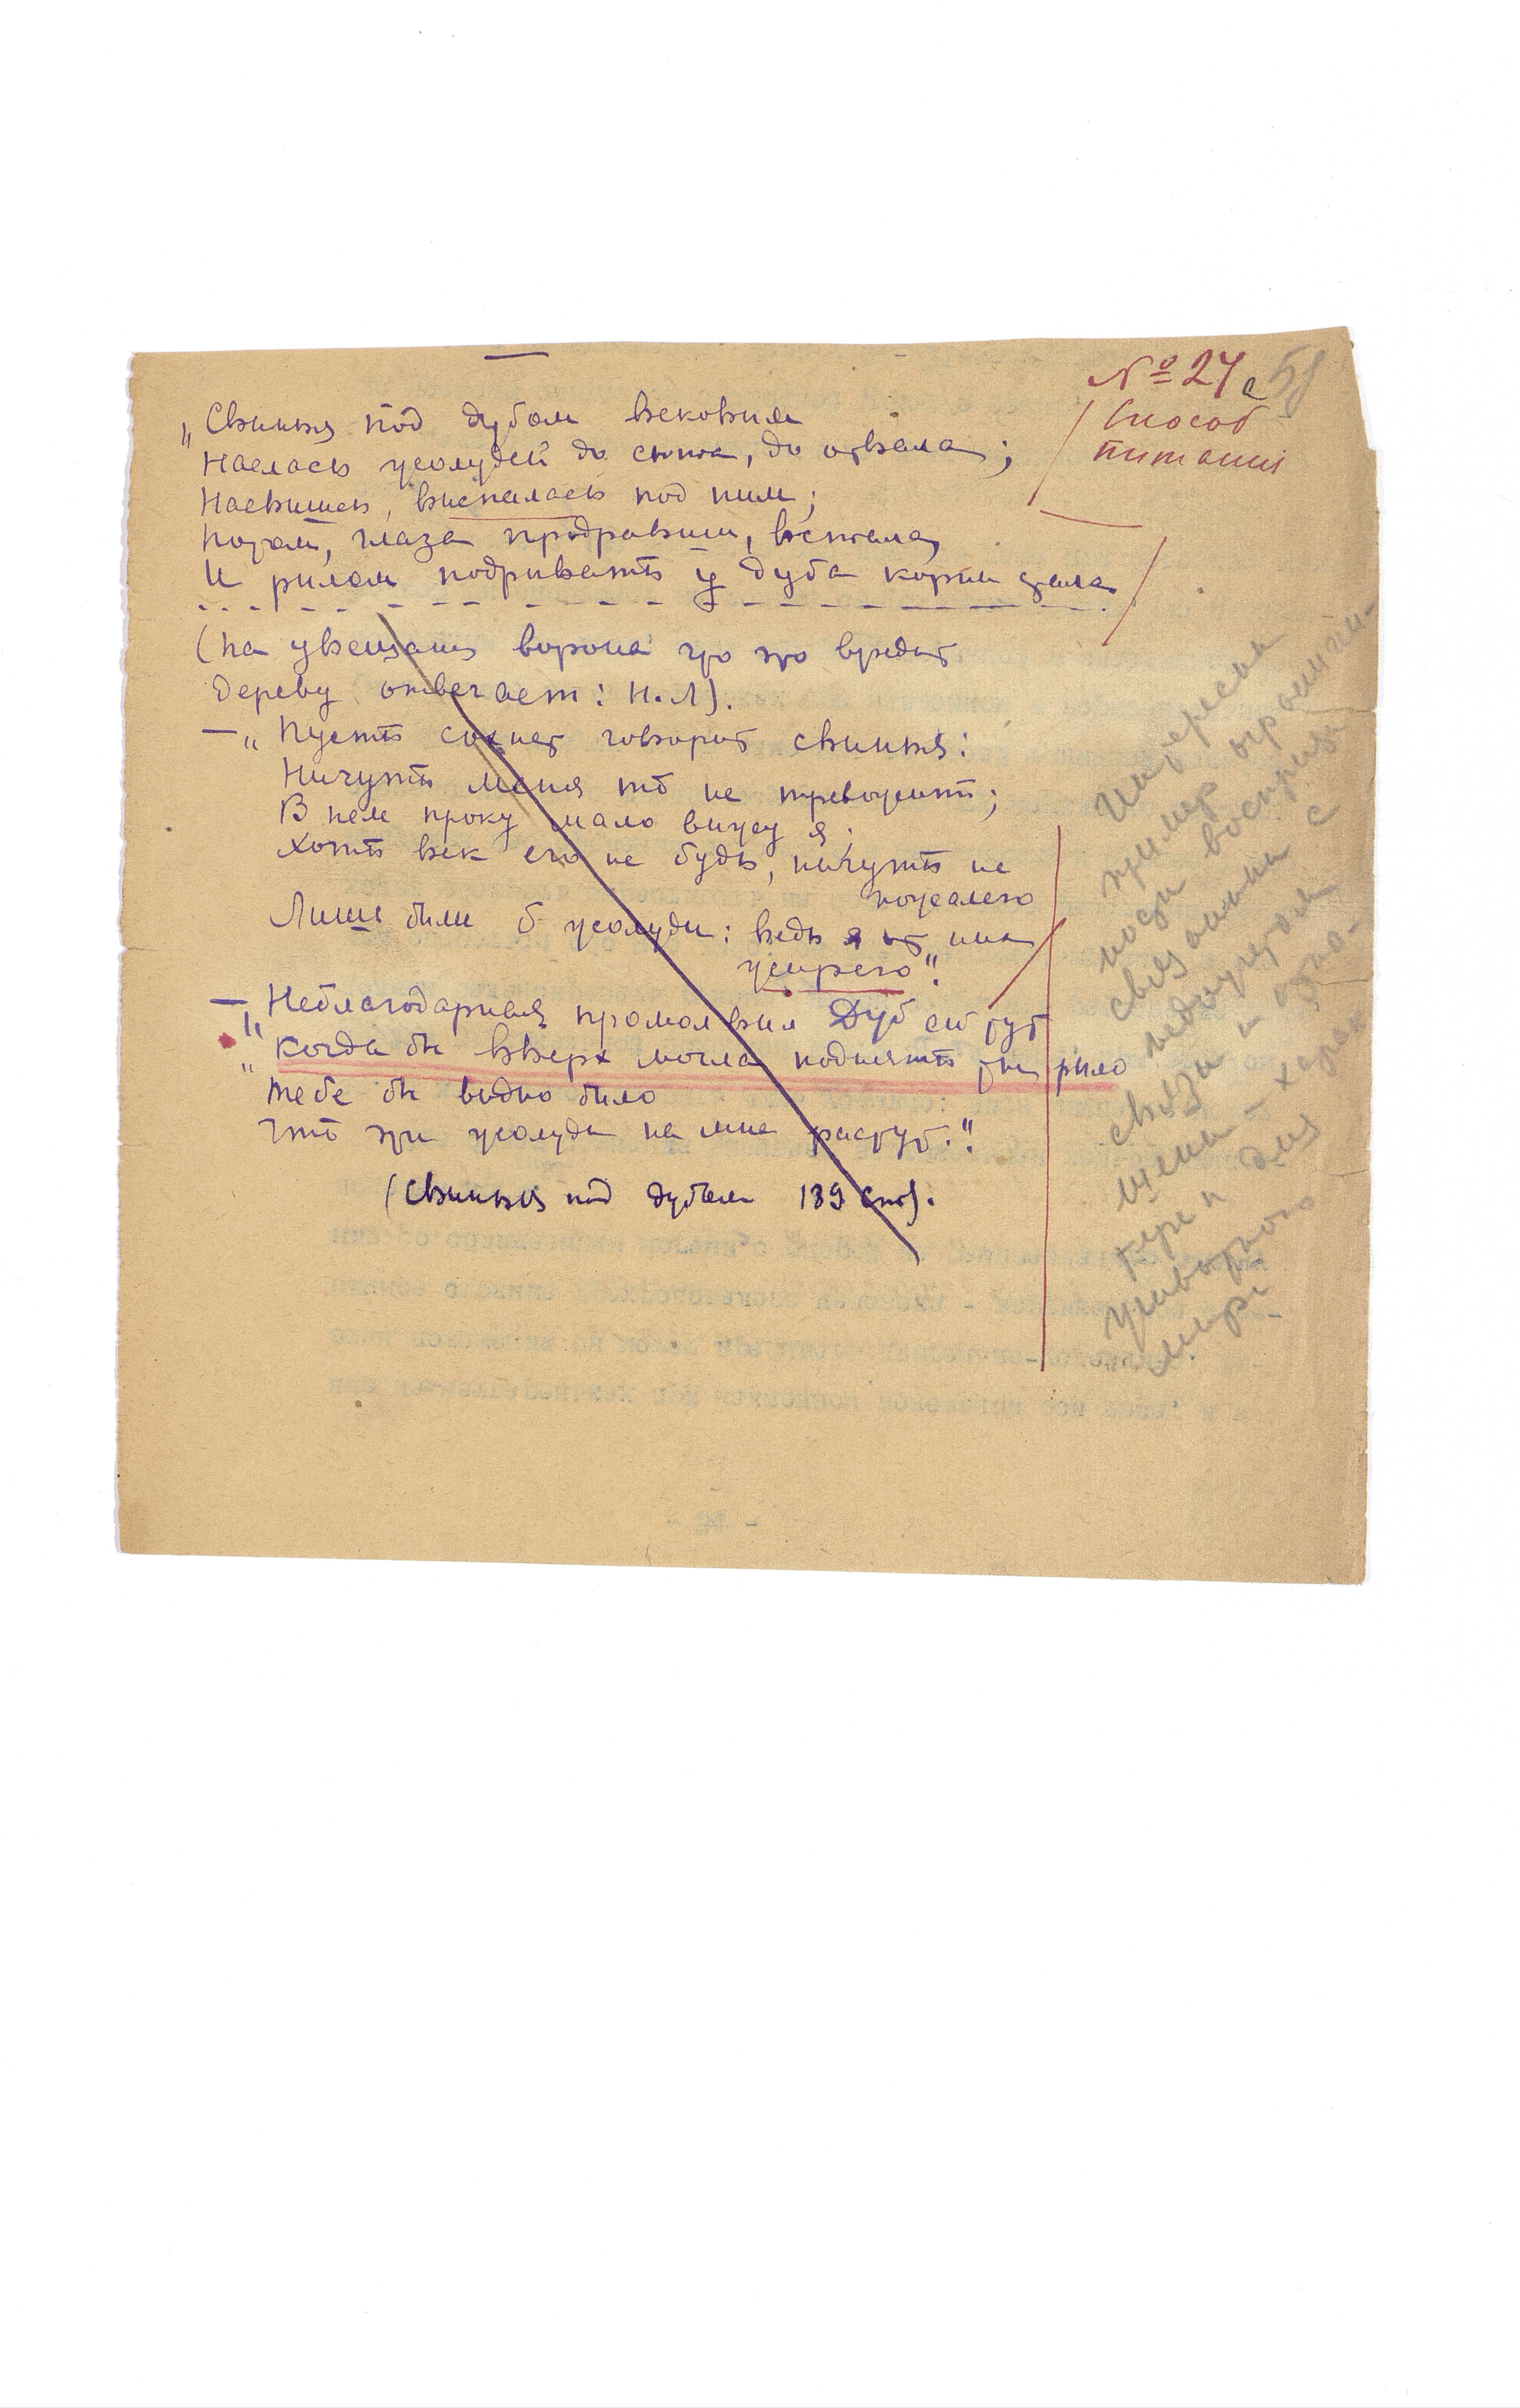 № 24 с 58
Способ
питания
„Свинья под дубом вековым
Наелась желудей до сыта, до отвала;
Наевшись, выспалась под ним;
Потом, глаза продравши, встала,
И рылом подрывать у дуба корни стала
(на увещания ворона что это вредит
дереву отвечает: Н.Л).
— „Пусть сохнет говорит свинья:
Ничуть меня то не тревожит;
В нем проку мало вижу я;
Хоть век его не будь, ничуть не
пожалею
Лишь были б желуди: ведь я от них
жирею“.
— „Неблагодарная, промолвил Дуб ей тут
„Когда бы вверх могла поднять ты рыло
Тебе бы видно было
Что эти желуди на мне растут.“
(Свинья под дубом 189 стр).
Интересен
пример ограничен-
ности восприятия
связанный с
недоучетом
связи и отно-
шений — харак
терен для
животного
мира